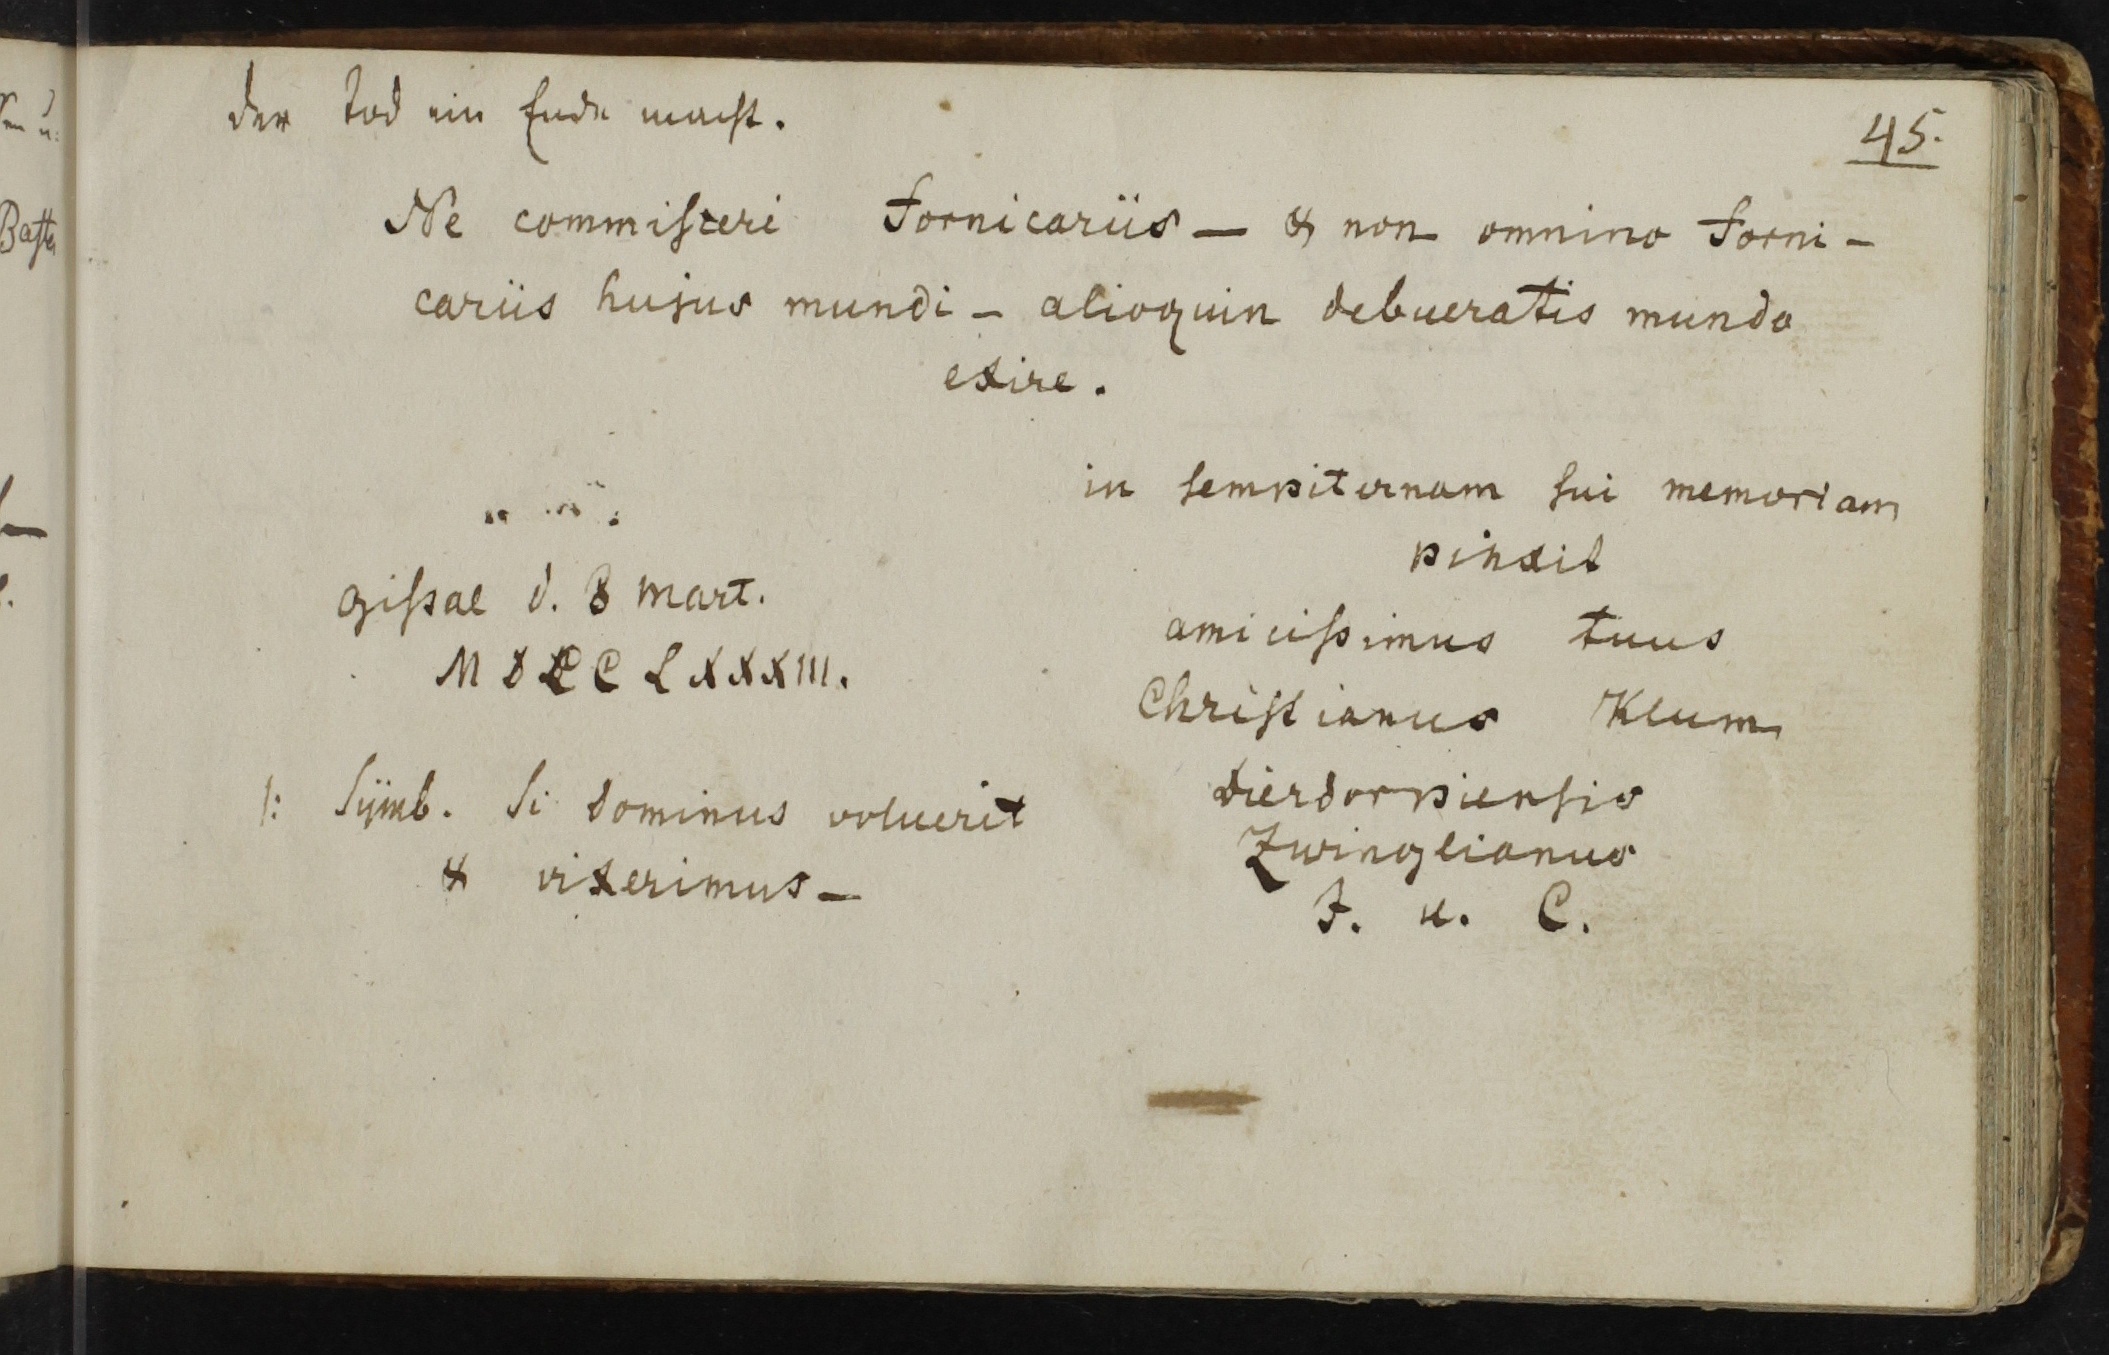 der Tod ein Ende macht.
45.
Ne commisceri Fornicariis — & non omnino Forni-
cariis hujus mundi - alioquin debueratis mundo
exire.
in sempiternam sui memoriam
pinxit
amicissimus tuus
Christianus Klum
Dierdorpiensis
Zwinglianus
J. u. C.
Gissae d. 8 Mart.
MDCCLXXXIII.
/: Sÿmb. Si Dominus voluerit
& vixerimus —